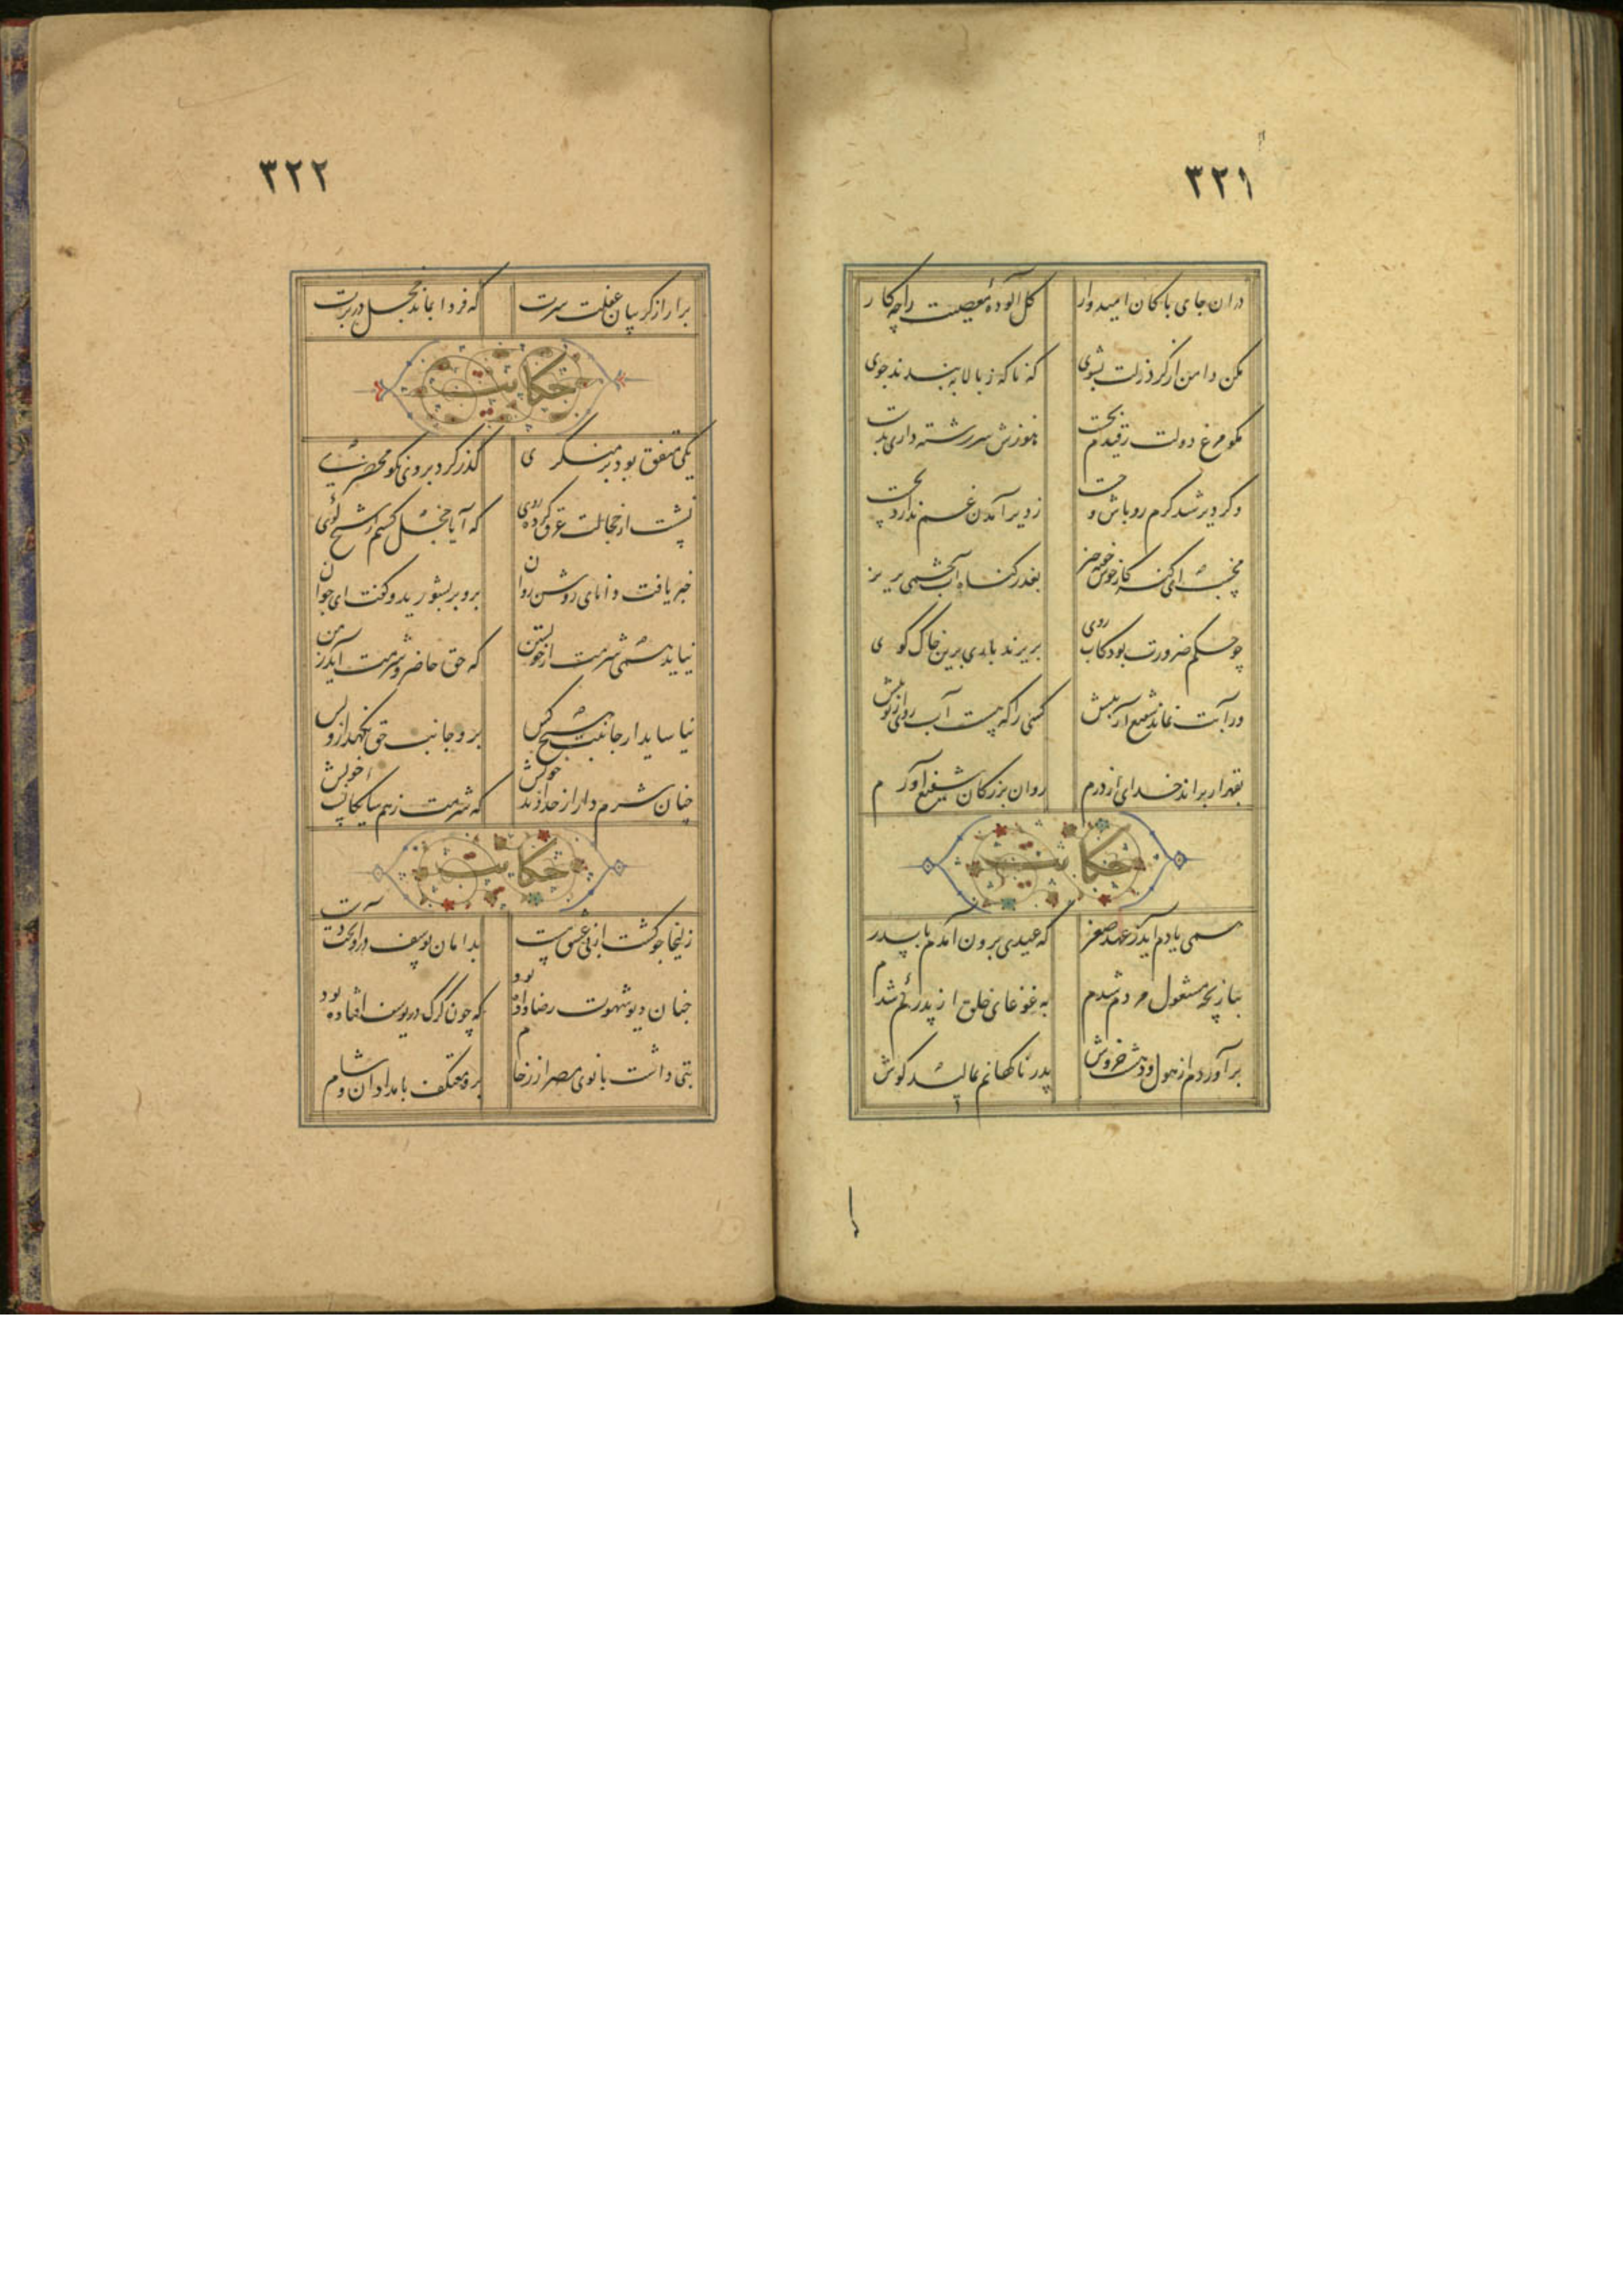 ۳۲۱
دران جای پاکان امیدوار
کل آلودهٔ معصیت را چه کار
مکن دامن از گرد زلت بشوی
که ناکه ز بالا ببندند جوی
مکو مرغ دولت ز قیدم بجست
هنوزش سر رشته داری بدست
وکر دیر شد کرم رو باش و چست
ز دیر آمدن غم ندارد درست
مخسب ای کنه کار خوش خفته خیز
بعذر کناه آب چشمی بریز
چو حکم ضرورت بود کاب روی
بریزند باری برین خاک کوی
ور آبت نماند شفیع آر پیش
کسی را که هست آب روی از تو بیش
بقهر ار براند خدای از درم
روان بزرکان شفیع آورم
حکایت
همی یادم آید ز عهد صغر
که عیدی برون آمدم با پدر
ببازیچه مشغول مردم شدم
به غوغای خلق از پدر کم شدم
برآوردم از هول و دهشت خروش
پدر ناکهانم بمالید کوش
۳۲۲
برار از کریبان غفلت سرت
که فردا بماند خجل در برت
حکایت
یکی متفق بود بر منکری
کذر کرد بر وی نکو محضری
نشست از خجالت عرق کرده روی
که آیا خجل کشتم از شیخ کوی
خبر یافت دانای روشن روان
برو بر بشورید و کفت ای جوان
نیاید همی شرمت از خویشتن
که حق حاضر و شرمت آید ز من
نیاساید از جانب هیچ کس
برو جانب حق نکهدار و بس
چنان شرم دار از خداوند خویش
که شرمت ز همسایکان خویش
حکایت
زلیخا چو کشت از می عشق مست
بدامان یوسف درآویخت دست
چنان دیو شهوت رضا داده بود
که چون کرک در یوسف افتاده بود
بتی داشت بانوی مصر از رخام
برو معتکف بامدادان و شام